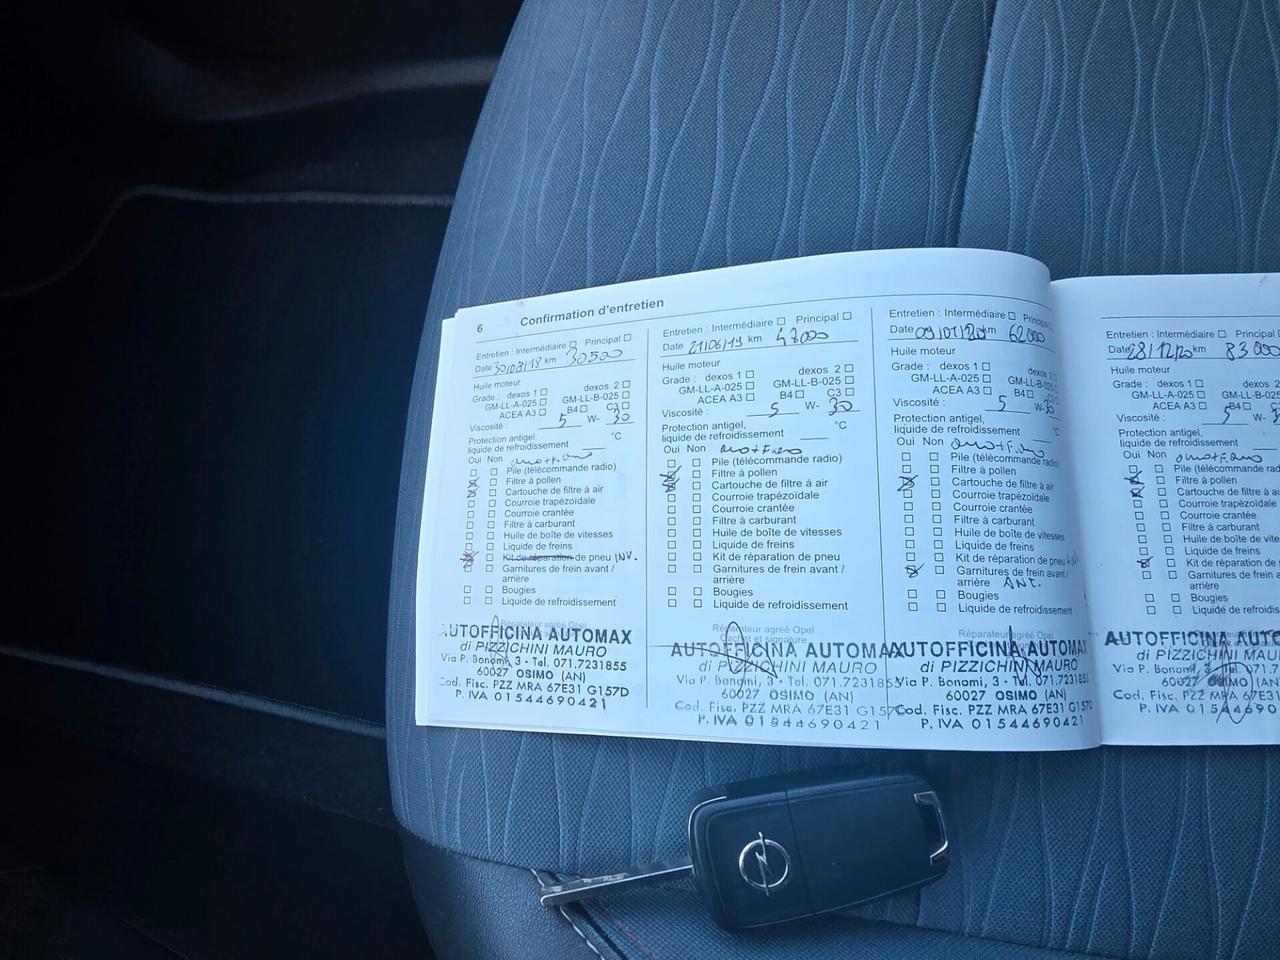 6 Confirmation d'entretien
Entretien : Intermédiaire Principal
Date 30/08/18 km 30500
Huile moteur
Grade : dexos 1 dexos 2
GM-LL-A-025 GM-LL-B-025
ACEA A3 B4 C3
Viscosité : 5 W- 30
Protection antigel,
liquide de refroidissement °C
Oui Non
Pile (télécommande radio)
Filtre à pollen
Cartouche de filtre à air
Courroie trapézoïdale
Courroie crantée
Filtre à carburant
Huile de boîte de vitesses
Liquide de freins
Kit de réparation de pneu INV.
Garnitures de frein avant /
arrière
Bougies
Liquide de refroidissement
Réparateur agréé Opel
AUTOFFICINA AUTOMAX
di PIZZICHINI MAURO
Via P. Bonomi, 3 - Tel. 071.7231855
60027 OSIMO (AN)
Cod. Fisc. PZZ MRA 67E31 G157D
P. IVA 01544690421
Entretien : Intermédiaire Principal
Date 21/06/19 km 47000
Huile moteur
Grade : dexos 1 dexos 2
GM-LL-A-025 GM-LL-B-025
ACEA A3 B4 C3
Viscosité : 5 W- 30
Protection antigel,
liquide de refroidissement °C
Oui Non
Pile (télécommande radio)
Filtre à pollen
Cartouche de filtre à air
Courroie trapézoïdale
Courroie crantée
Filtre à carburant
Huile de boîte de vitesses
Liquide de freins
Kit de réparation de pneu
Garnitures de frein avant /
arrière
Bougies
Liquide de refroidissement
Réparateur agréé Opel
Cachet et signature
AUTOFFICINA AUTOMAX
di PIZZICHINI MAURO
Via P. Bonomi, 3 - Tel. 071.7231855
60027 OSIMO (AN)
Cod. Fisc. PZZ MRA 67E31 G157
P. IVA 01544690421
Entretien : Intermédiaire Principal
Date 09/01/20 km 62000
Huile moteur
Grade : dexos 1 dexos
GM-LL-A-025 GM-LL-B-025
ACEA A3 B4 C3
Viscosité : 5 W- 30
Protection antigel,
liquide de refroidissement °C
Oui Non
Pile (télécommande radio)
Filtre à pollen
Cartouche de filtre à air
Courroie trapézoïdale
Courroie crantée
Filtre à carburant
Huile de boîte de vitesses
Liquide de freins
Kit de réparation de pneu
Garnitures de frein avant /
arrière ANT.
Bougies
Liquide de refroidissement
Réparateur agréé Opel
AUTOFFICINA AUTOMAX
di PIZZICHINI MAURO
Via P. Bonomi, 3 - Tel. 071.7231855
60027 OSIMO (AN)
Cod. Fisc. PZZ MRA 67E31 G157D
P. IVA 01544690421
Entretien : Intermédiaire Principal
Date 28/12/20 km 83000
Huile moteur
Grade : dexos 1 dexos 2
GM-LL-A-025 GM-LL-B-025
ACEA A3 B4
Viscosité : 5 W-
Protection antigel,
liquide de refroidissement
Oui Non
Pile (télécommande radio)
Filtre à pollen
Cartouche de filtre à air
Courroie trapézoïdale
Courroie crantée
Filtre à carburant
Huile de boîte de vitesses
Liquide de freins
Kit de réparation de
Garnitures de frein avant
arrière
Bougies
Liquide de refroidissement
AUTOFFICINA AUTO
di PIZZICHINI MAUR
Via P. Bonomi, 3 - Tel. 071.723
60027 OSIMO (AN)
Cod. Fisc. PZZ MRA 67E31
P. IVA 01544690